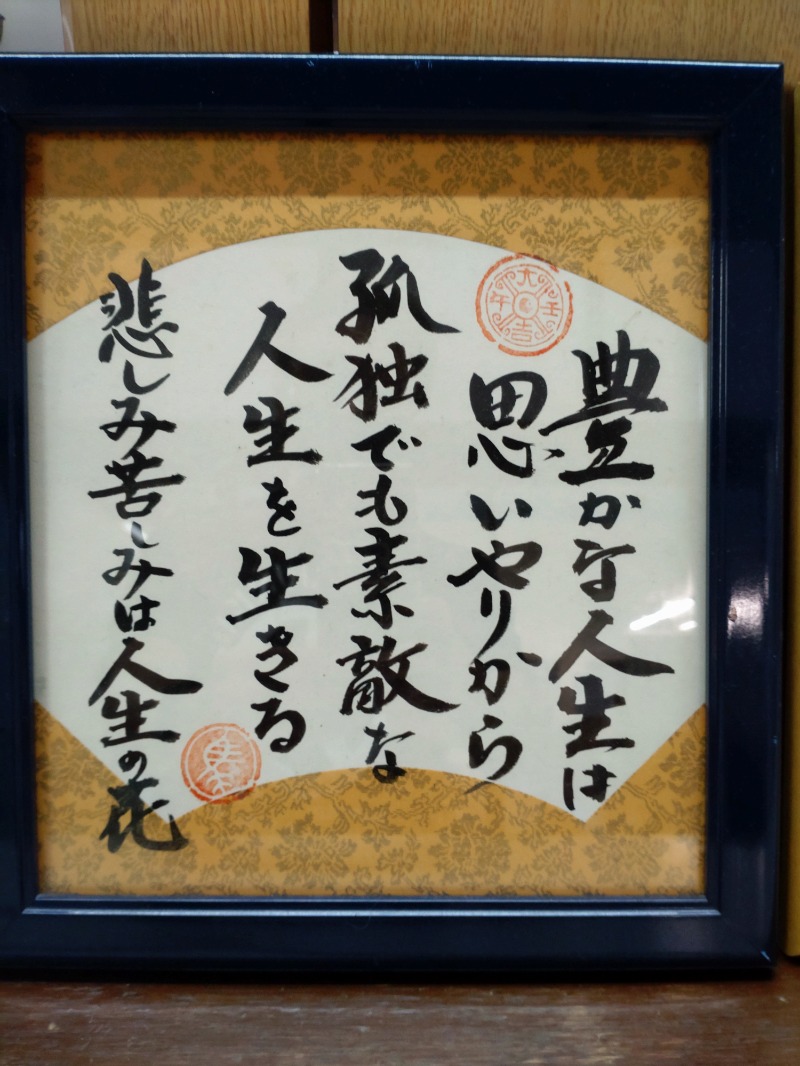 豊かな人生は
思いやりから
孤独でも素敵な
人生を生きる
悲しみ苦しみは人生の花